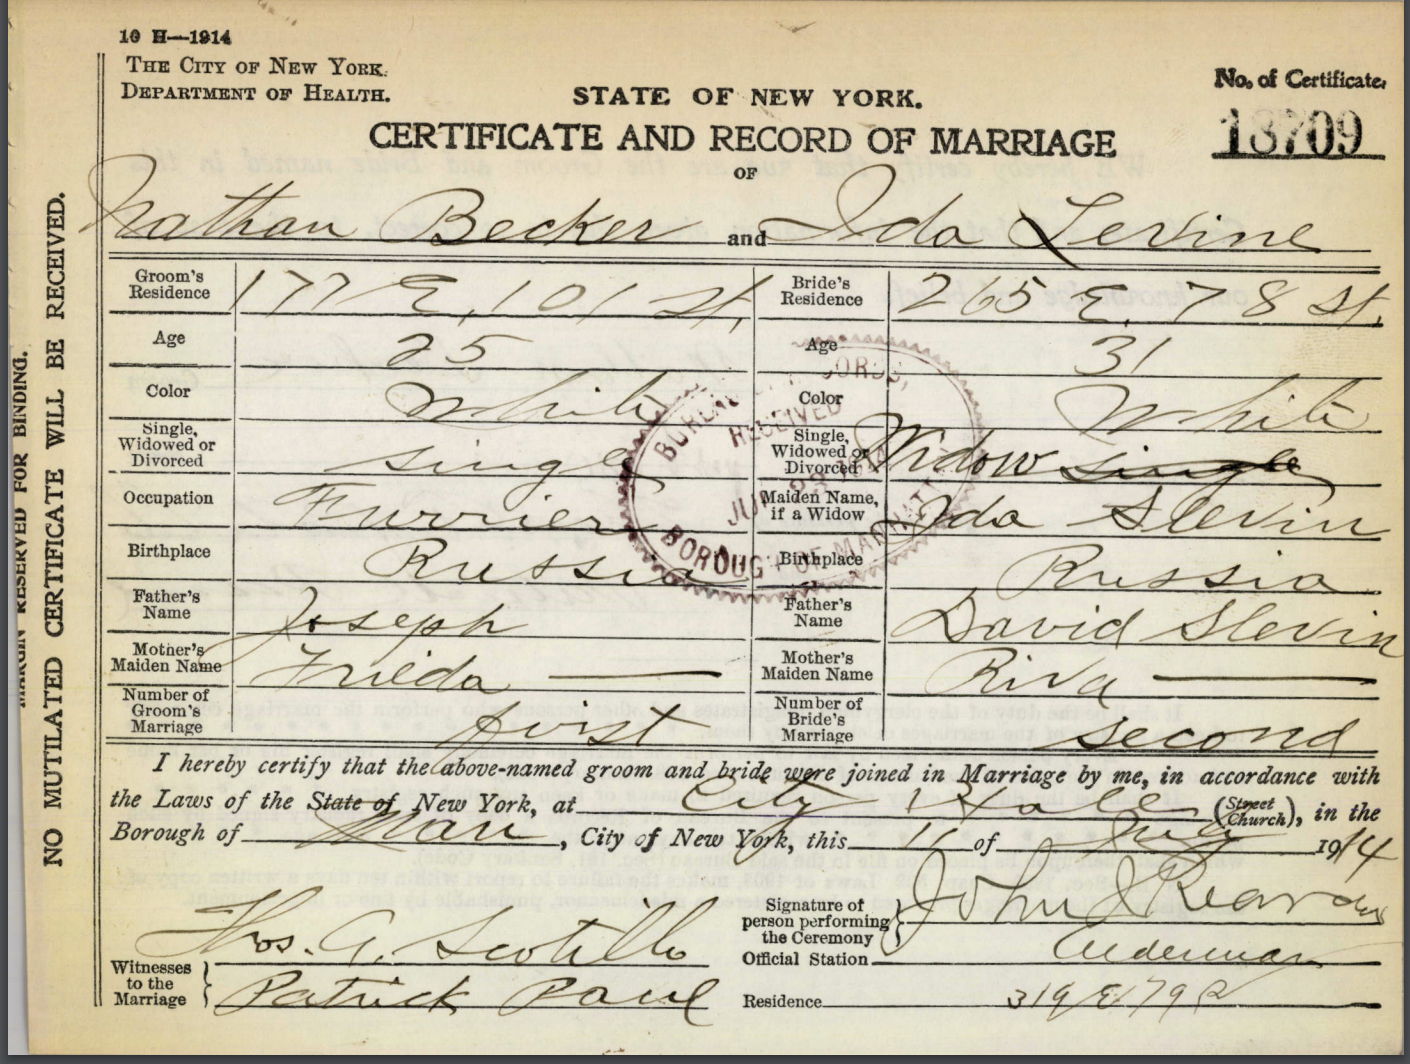 10 H—1914
THE CITY OF NEW YORK.
DEPARTMENT OF HEALTH.
STATE OF NEW YORK.
No. of Certificate.
18709
CERTIFICATE AND RECORD OF MARRIAGE
OF
Nathan Becker and Ida Levine
Groom's Residence 177 E. 101 St. Bride's Residence 265 E. 78 St.
Age 25 Age 31
Color White Color White
Single, Widowed or Divorced single Single, Widowed or Divorced Widow single
Occupation Furrier Maiden Name, if a Widow Ida Slevin
Birthplace Russia Birthplace Russia
Father's Name Joseph Father's Name David Slevin
Mother's Maiden Name Frieda — Mother's Maiden Name Riva —
Number of Groom's Marriage first Number of Bride's Marriage second
I hereby certify that the above-named groom and bride were joined in Marriage by me, in accordance with
the Laws of the State of New York, at City Hall (Street Church), in the
Borough of Man, City of New York, this of 1914
Signature of person performing the Ceremony John
Official Station Alderman
Residence 319 E 79
Witnesses to the Marriage Thos. A. Scotillo
Patrick Paul
NO MUTILATED CERTIFICATE WILL BE RECEIVED.
MARGIN RESERVED FOR BINDING.
RECEIVED
BOROUGH OF MANHATTAN